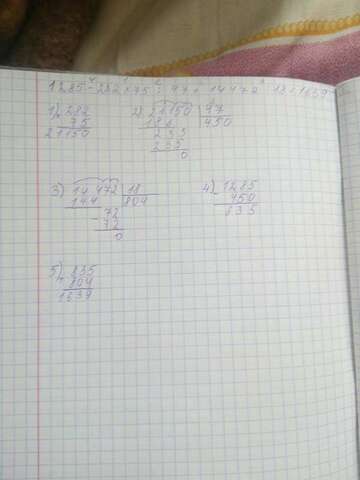 1285-282×75:47+14472:18=1639
1) 282 2) 21150 | 47
75 188 450
21150 235
235
0
3) 14472 | 18 4) 1285
144 804 - 450
- 72 835
72
0
5) 835
+ 804
1639